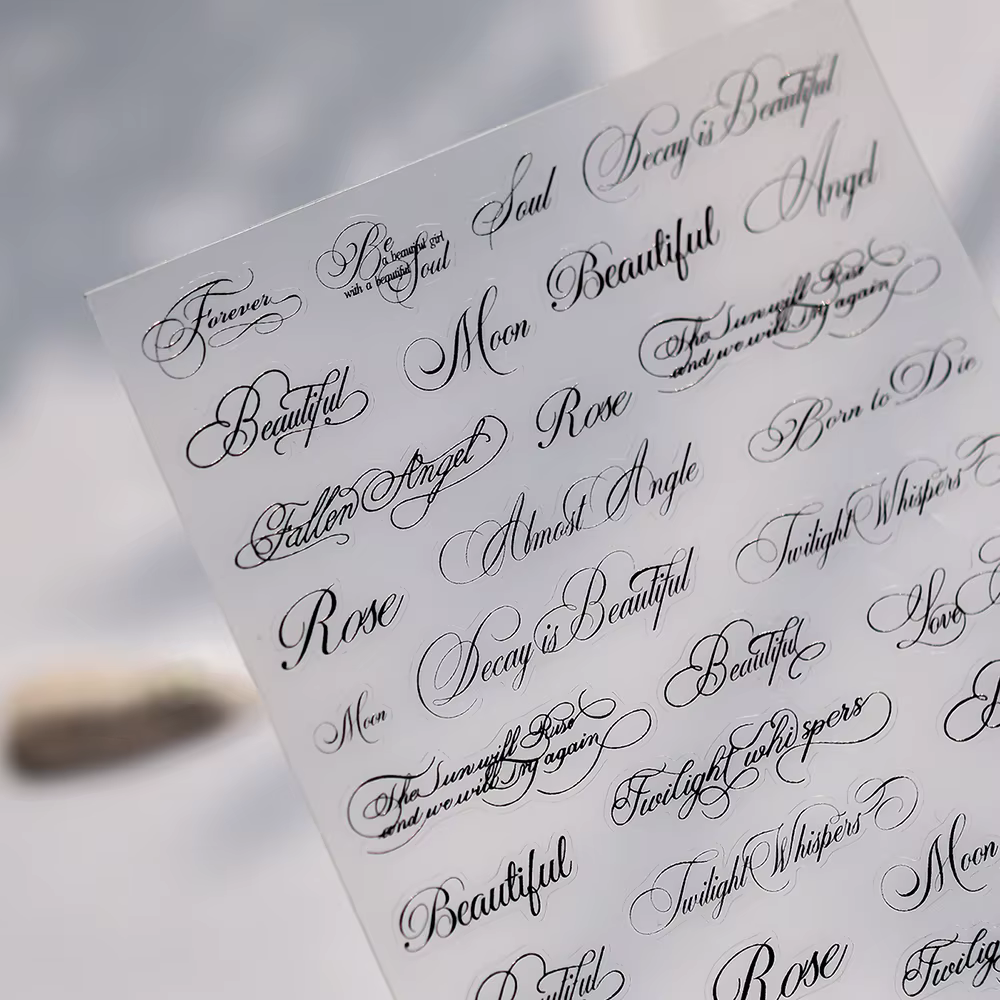 Forever
Be
a beautiful girl
with a beautiful
Soul
Soul
Decay is Beautiful
Beautiful
Moon
Beautiful
Angel
Fallen Angel
Rose
The Sun will Rise
and we will Try again
Rose
Almost Angle
Born to Die
Moon
Decay is Beautiful
Twilight Whispers
The Sun will Rise
and we will Try again
Beautiful
Love
Beautiful
Twilight whispers
Twilight Whispers
Moon
Beautiful
Rose
Twilig